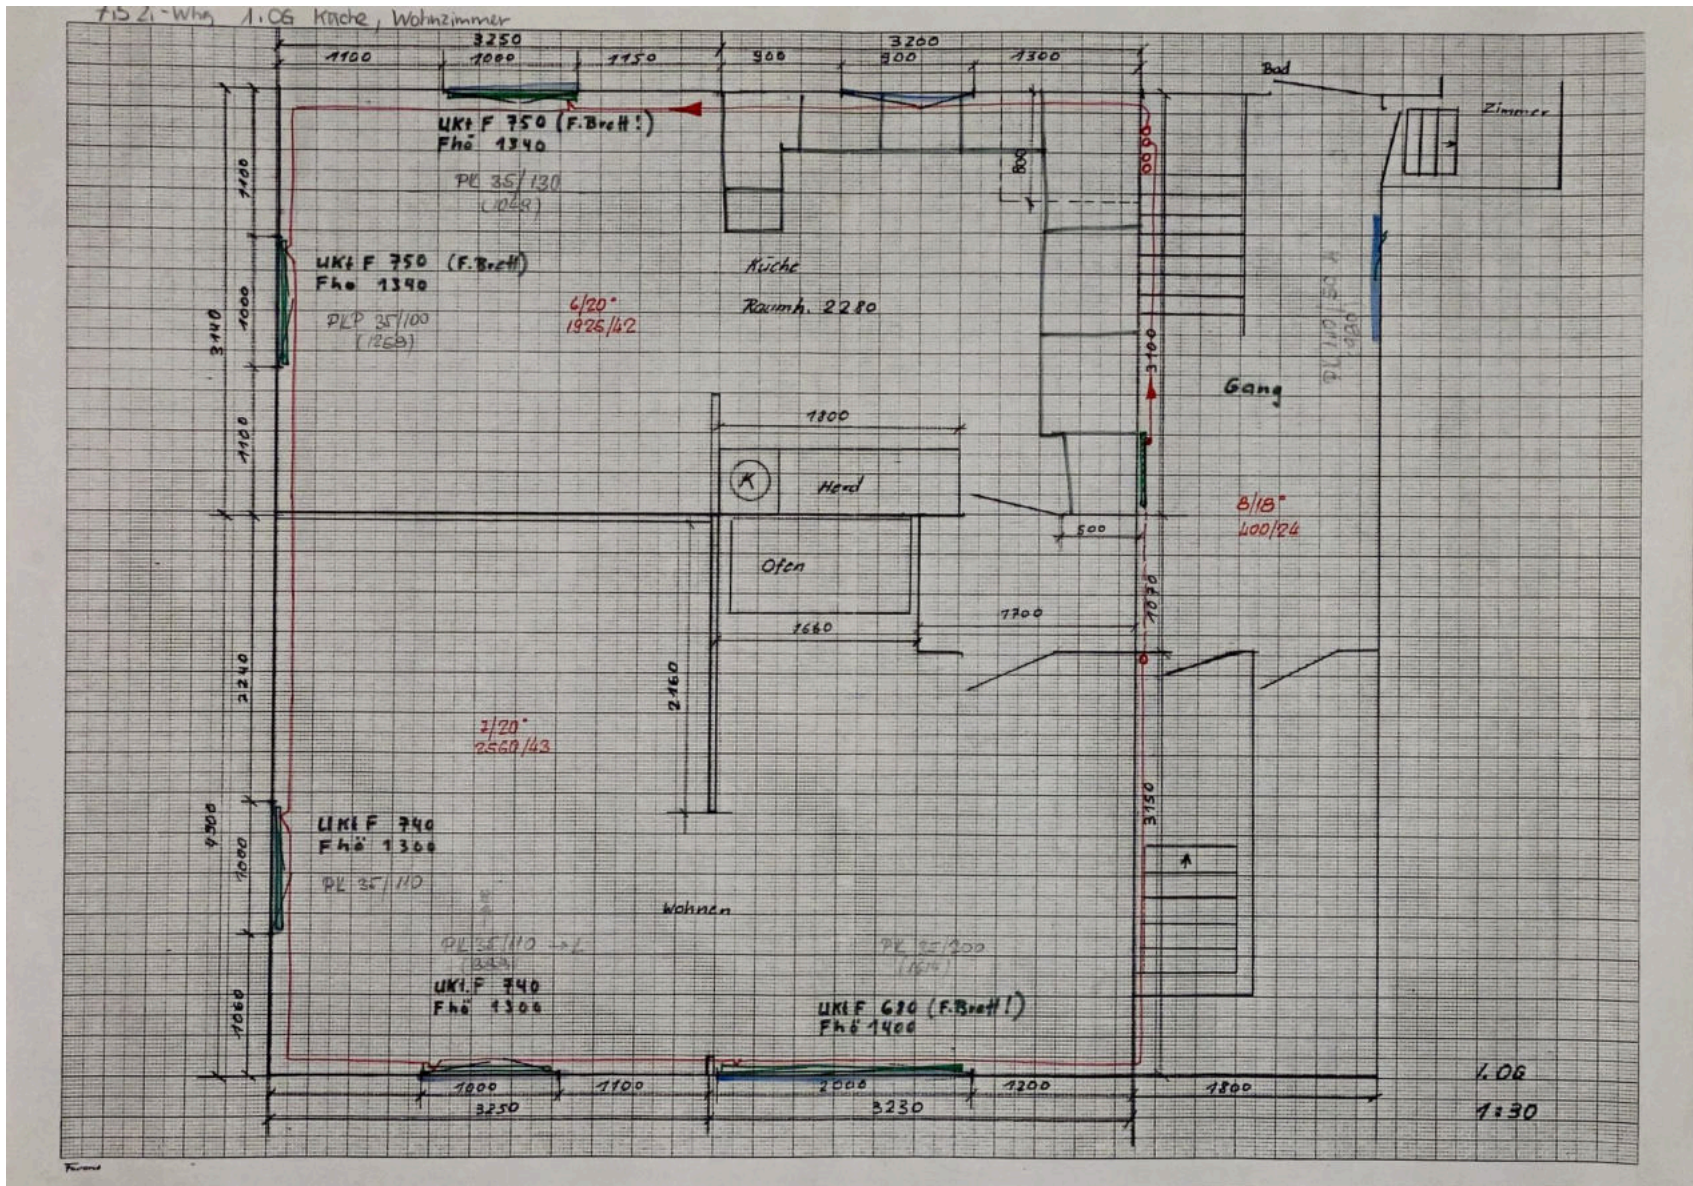 7,5 Zi-Whg 1.OG Küche, Wohnzimmer
3250
3200
1100
1000
1150
900
900
1300
Bad
Zimmer
UKt F 750 (F.Brett!)
Fhö 1340
PK 35/130
800
1100
UKt F 750 (F.Brett)
Fhö 1340
PKP 35/100
(1268)
6/20°
1926/42
Küche
Raumh. 2280
1000
3140
3100
Gang
1100
1800
K
Herd
8/18°
400/24
500
Ofen
1070
1700
1660
2240
2160
7/20°
2560/43
4900
1000
UKt F 740
Fhö 1300
PK 35/110
3150
Wohnen
PK 35/110 → L
PK 35/200
UKt.F 740
Fhö 1300
UKt F 680 (F.Brett!)
Fhö 1400
1060
1000
1100
2000
1200
1800
3250
3230
1.OG
1:30